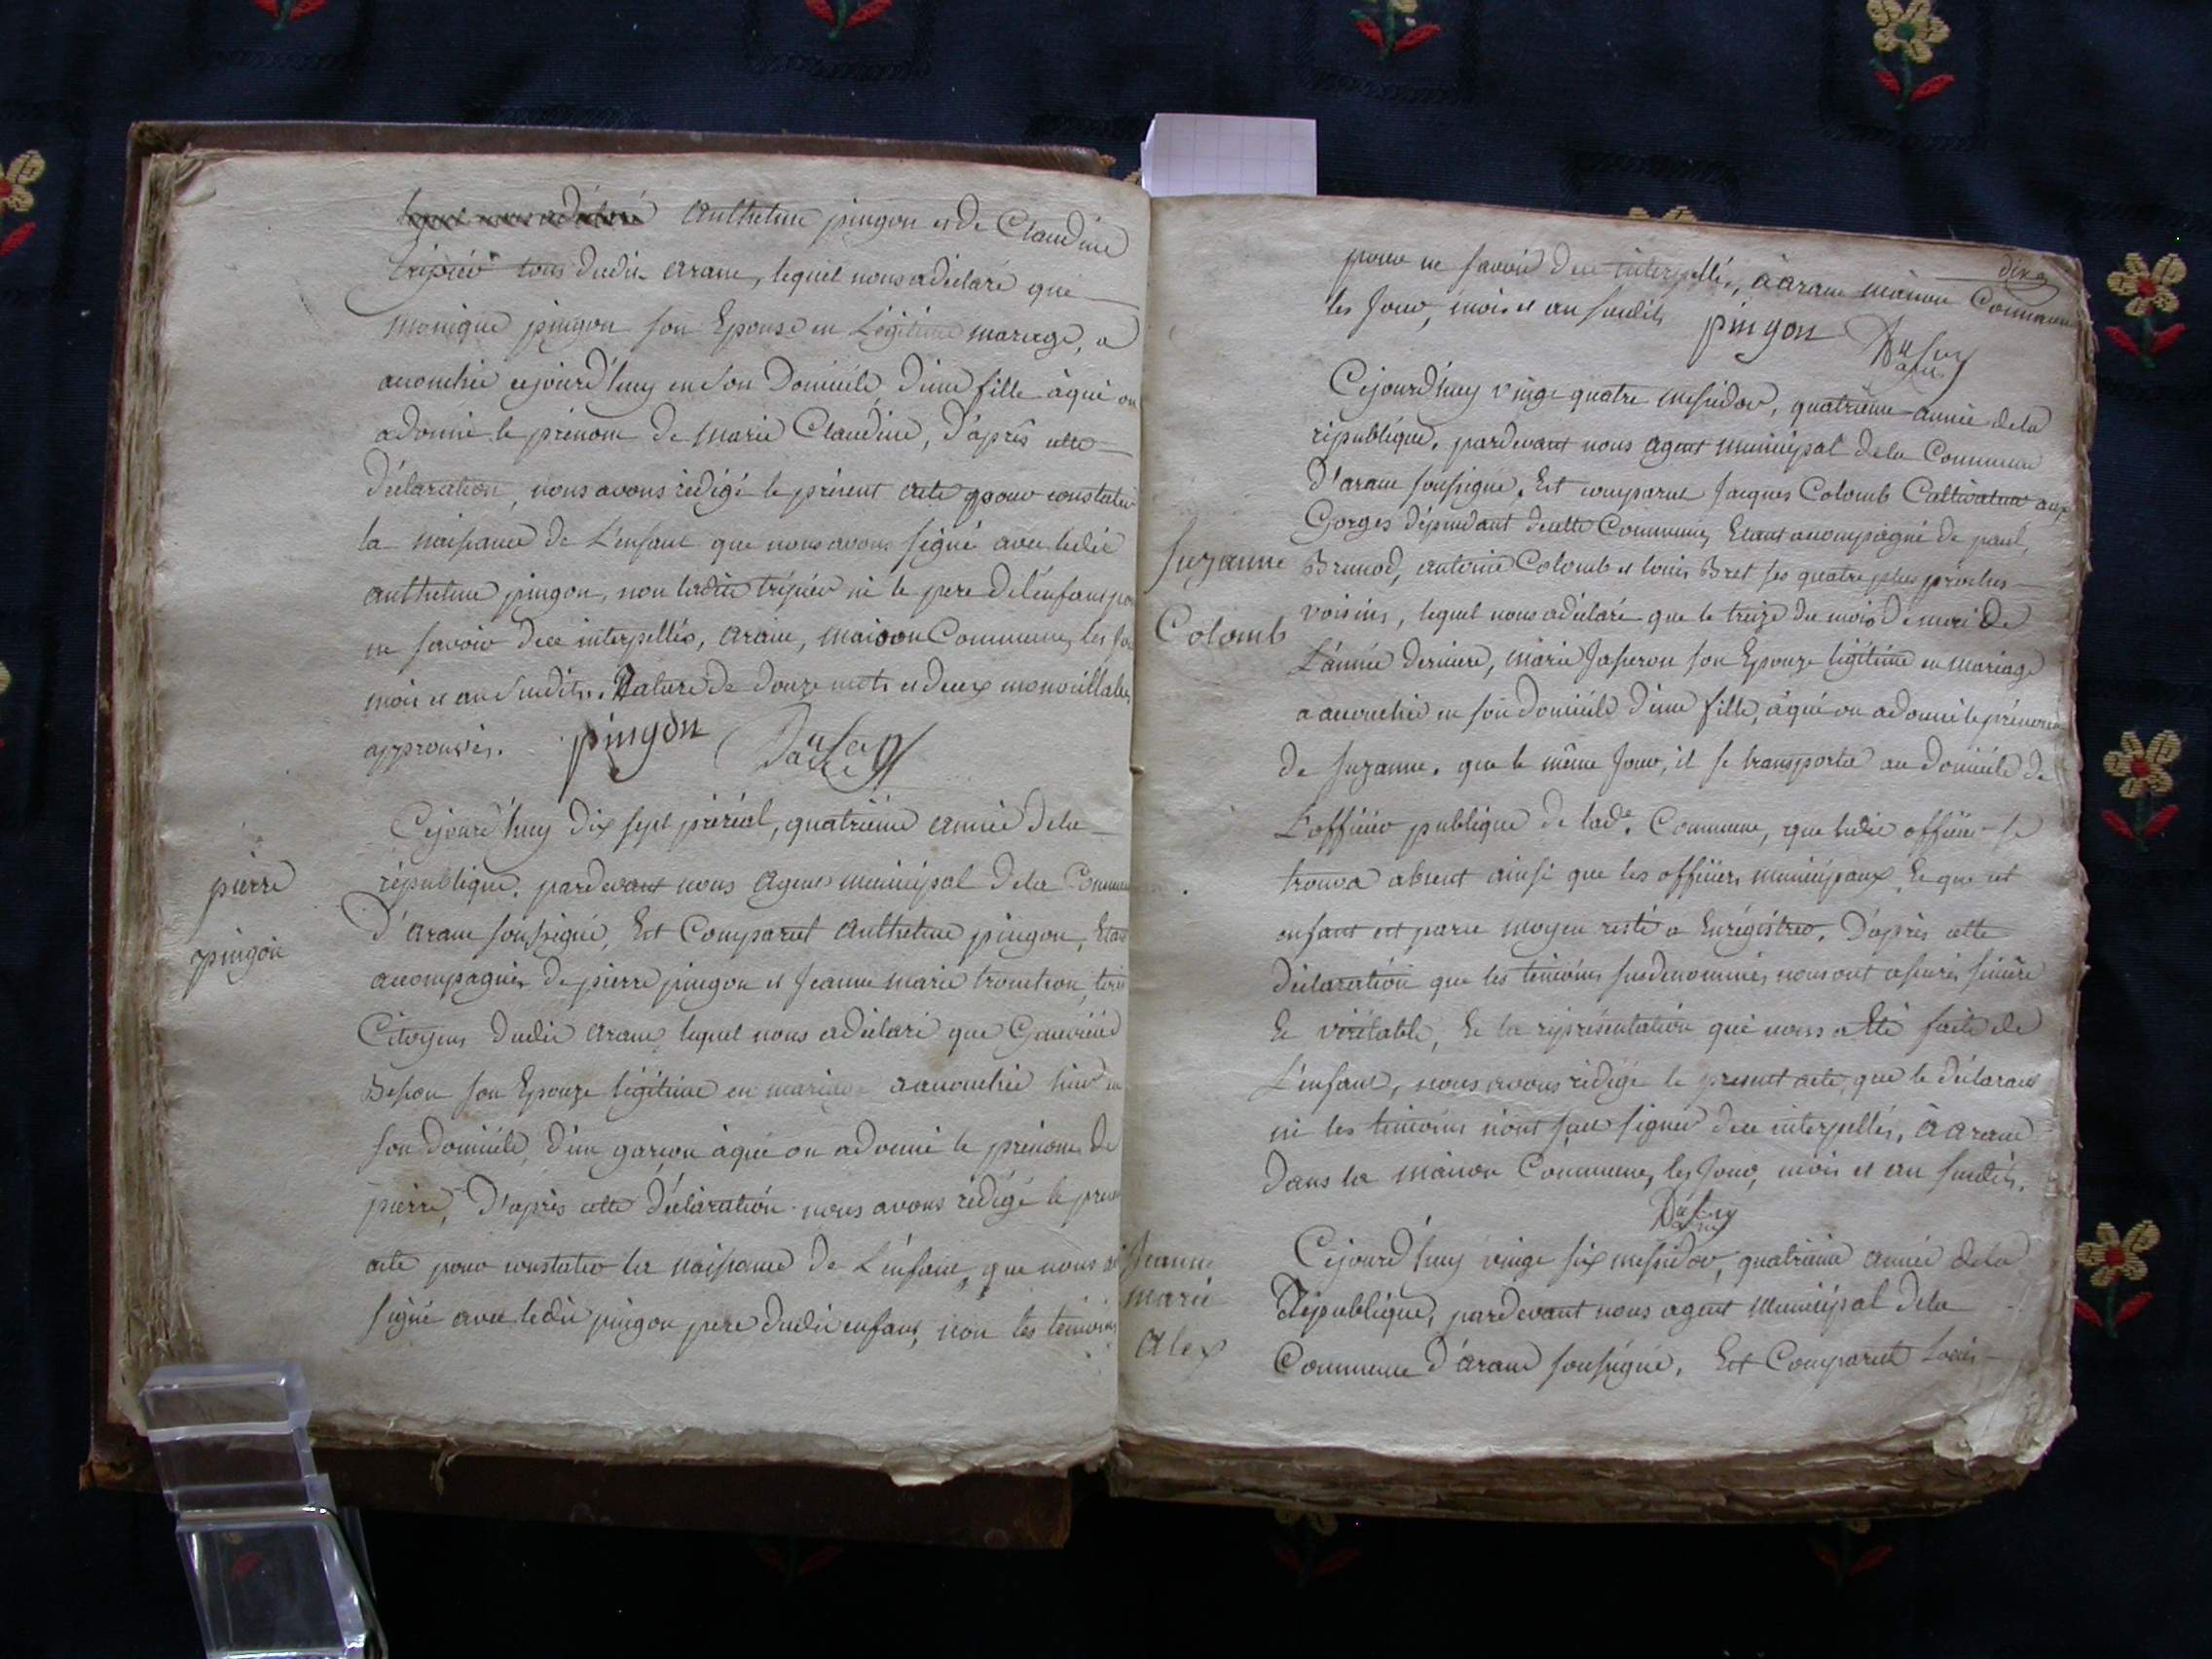 anthelme pingon et de Claudine
tripier tous dudit arane, lequel nous a déclaré que
monique pingon son Epouse en Légitime mariage, a
acouchée cejourd'huy en son Domicile, d'une fille à qui on
a donné le prénom de marie Claudine, d'après cette
déclaration, nous avons rédigé le présent acte pour constater
la naissance de L'enfant que nous avons signé avec ledit
anthelme pingon, non ladite tripier ni le pere de l'enfant pour
ne savoir de ce interpellés, arane, maison Commune, les jour
mois et an susdits. Rature de douze mots et deux
approuvés. pingon
Cejourd'huy dix sept prérial, quatrième année de la
république, pardevant nous agent municipal de la Commune
pierre
D'arane soussigné, Est Comparut anthelme pingon, Etant
pingon
acompagnés de pierre pingon et Jeanne marie tronchon, tous
Citoyens dudit arane, lequel nous a déclaré que
Besson son Epouze légitime en mariage acouchée hier en
son domicile, d'un garçon à qui on a donné le prénom de
pierre, D'après cette déclaration nous avons rédigé le present
acte pour constater la naissance de L'enfant, que nous
signé avec ledit pingon pere dudit enfant, non les temoins
dix
pour ne savoir de ce interpellés, à arane maison Commune
les Jour, mois et an susdits pingon
Cejourd'huy vingt quatre messidor, quatrième année de la
république, pardevant nous agent municipal de la Commune
D'arane soussigné, Est comparut Jacques Colomb Cultivateur aux
Gorges dépendant de cette Commune, Etant acompagné de paul
Suzanne
Brunod, antoine Colomb et louis Bret ses quatre plus proches
Colomb
voisins, lequel nous a déclaré que le treize du mois de mai de
L'année derniere, marie Jasseron son Epouze légitime en mariage
a acouchée en son domicile d'une fille, à qui on a donné le prénom
de Suzanne. que le même Jour, il se transporta au domicile de
L'officier publique de lade. Commune, que ledit officier se
trouva absent ainsi que les officiers municipaux, Ee que cet
enfant est par ce moyen resté a Enrégistrer. D'après cette
déclaration que les temoins susdenommés nous ont assurés sincère
Ee véritable, Ee la représentation qui nous a Eté faite de
L'enfant, nous avons rédigé le present acte, que le déclarant
ni les temoins n'ont sçu signer de ce interpellés, à arane
Dans la maison Commune, les Jour, mois et an susdits.
Jeanne
marie
alex
Cejourd'huy vingt six messidor, quatrieme année de la
République, pardevant nous agent municipal de la
Commune d'arane soussigné, Est Comparut Louis